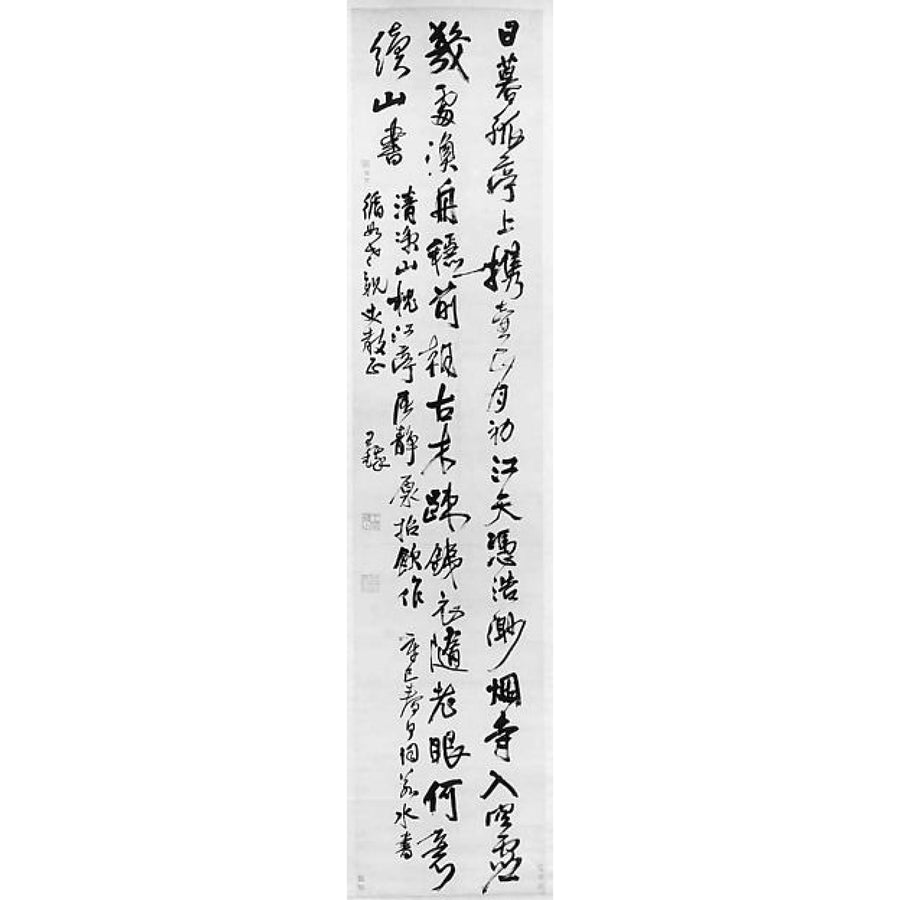 日暮孤亭上携壺正月初江天憑浩渺烟寺入空虛
幾處漁舟穩前朝古木疎銕衣隨老眼何意
續山書
清涼山枕江亭張靜原招飲作 辛巳春夕同若水書
循如老親丈教正 王鐸